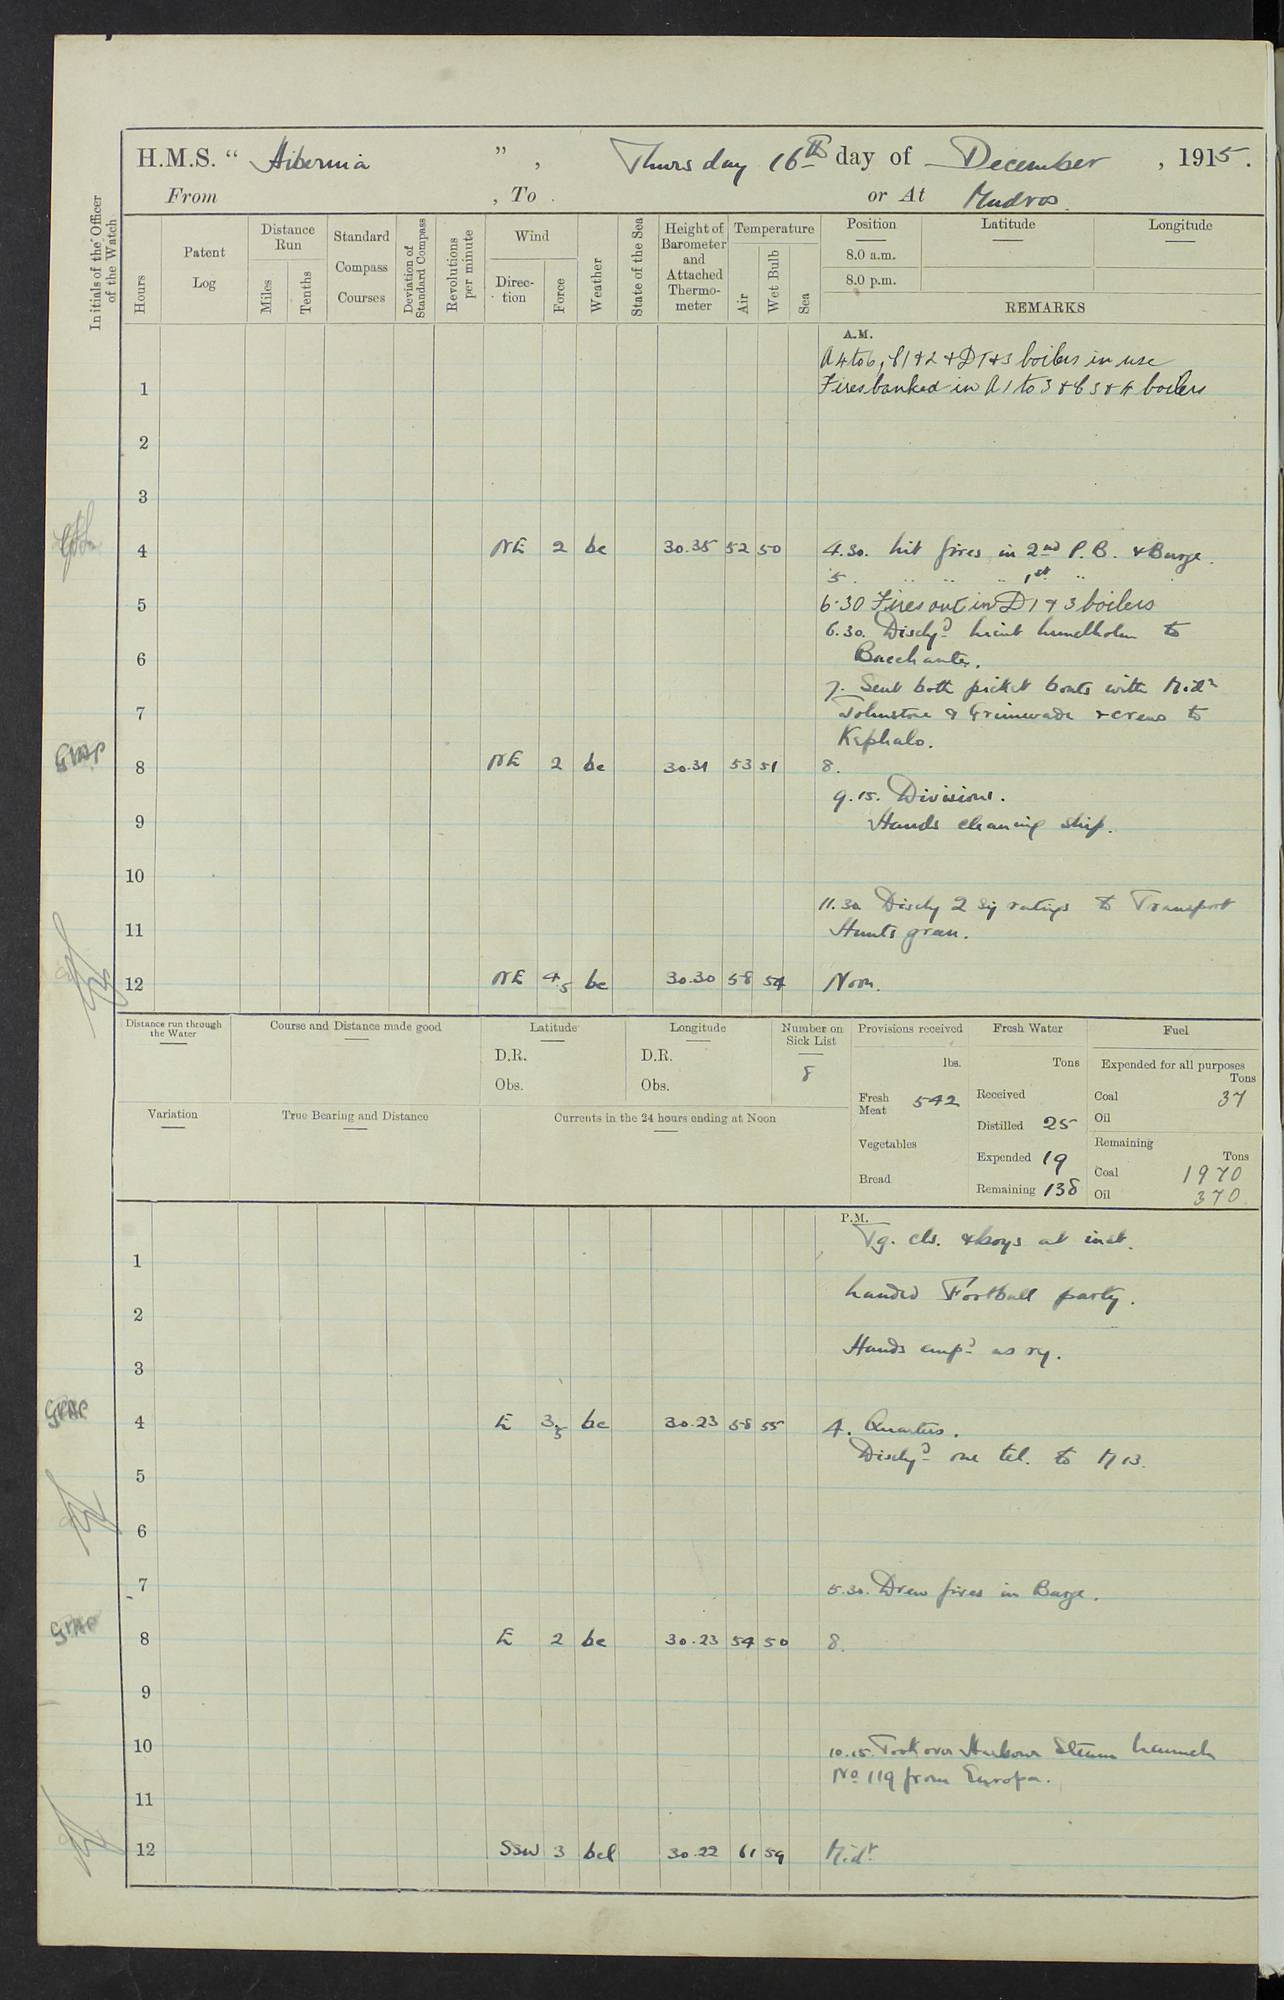 H.M.S. " Hibernia " , Thursday 16th day of December , 1915.
From , To . or At Mudros.
Initials of the Officer of the Watch
Hours
Patent Log
Distance Run
Miles
Tenths
Standard Compass Courses
Deviation of Standard Compass
Revolutions per minute
Wind
Direction
Force
Weather
State of the Sea
Height of Barometer and Attached Thermometer
Temperature
Air
Wet Bulb
Sea
Position
8.0 a.m.
8.0 p.m.
Latitude
Longitude
REMARKS
A.M.
A 4 to 6, C 1 & 2 & D 1 & 3 boilers in use
1 Fires banked in A 1 to 3 & C 3 & 4 boilers
2
3
4 NE 2 bc 30.35 52 50 4.30. Lit fires in 2nd P.B. & Barge.
5. " " " 1st "
5 6.30 Fires out in D 1 & 3 boilers
6.30. Dischd Lieut to
6 Bacchante.
7. Sent both picket boats with Midn
7 Johnstone & Grimwade & crews to
Kephalo.
8 NE 2 bc 30.31 53 51 8.
9.15. Divisions.
9 Hands cleaning ship.
10
11.30 Disch 2 sig ratings to Transport
11 Huntsgreen.
12 NE 4.5 bc 30.30 58 54 Noon.
Distance run through the Water
Course and Distance made good
Latitude
D.R.
Obs.
Longitude
D.R.
Obs.
Number on Sick List
8
Variation
True Bearing and Distance
Currents in the 24 hours ending at Noon
Provisions received
lbs.
Fresh Meat 542
Vegetables
Bread
Fresh Water
Tons
Received
Distilled 25
Expended 19
Remaining 138
Fuel
Expended for all purposes
Tons
Coal 37
Oil
Remaining
Tons
Coal 1970
Oil 370
P.M.
Tg. cls. & boys at inst.
1
Landed Football party.
2
Hands empd as ry.
3
4 E 3.5 bc 30.23 58 55 4. Quarters.
Dischd one tel. to M 13.
5
6
7 5.30. Drew fires in Barge.
8 E 2 bc 30.23 54 50 8.
9
10 10.15. Took over Harbour Steam Launch
No 119 from Europa.
11
12 SSW 3 bcl 30.22 61 59 Midt